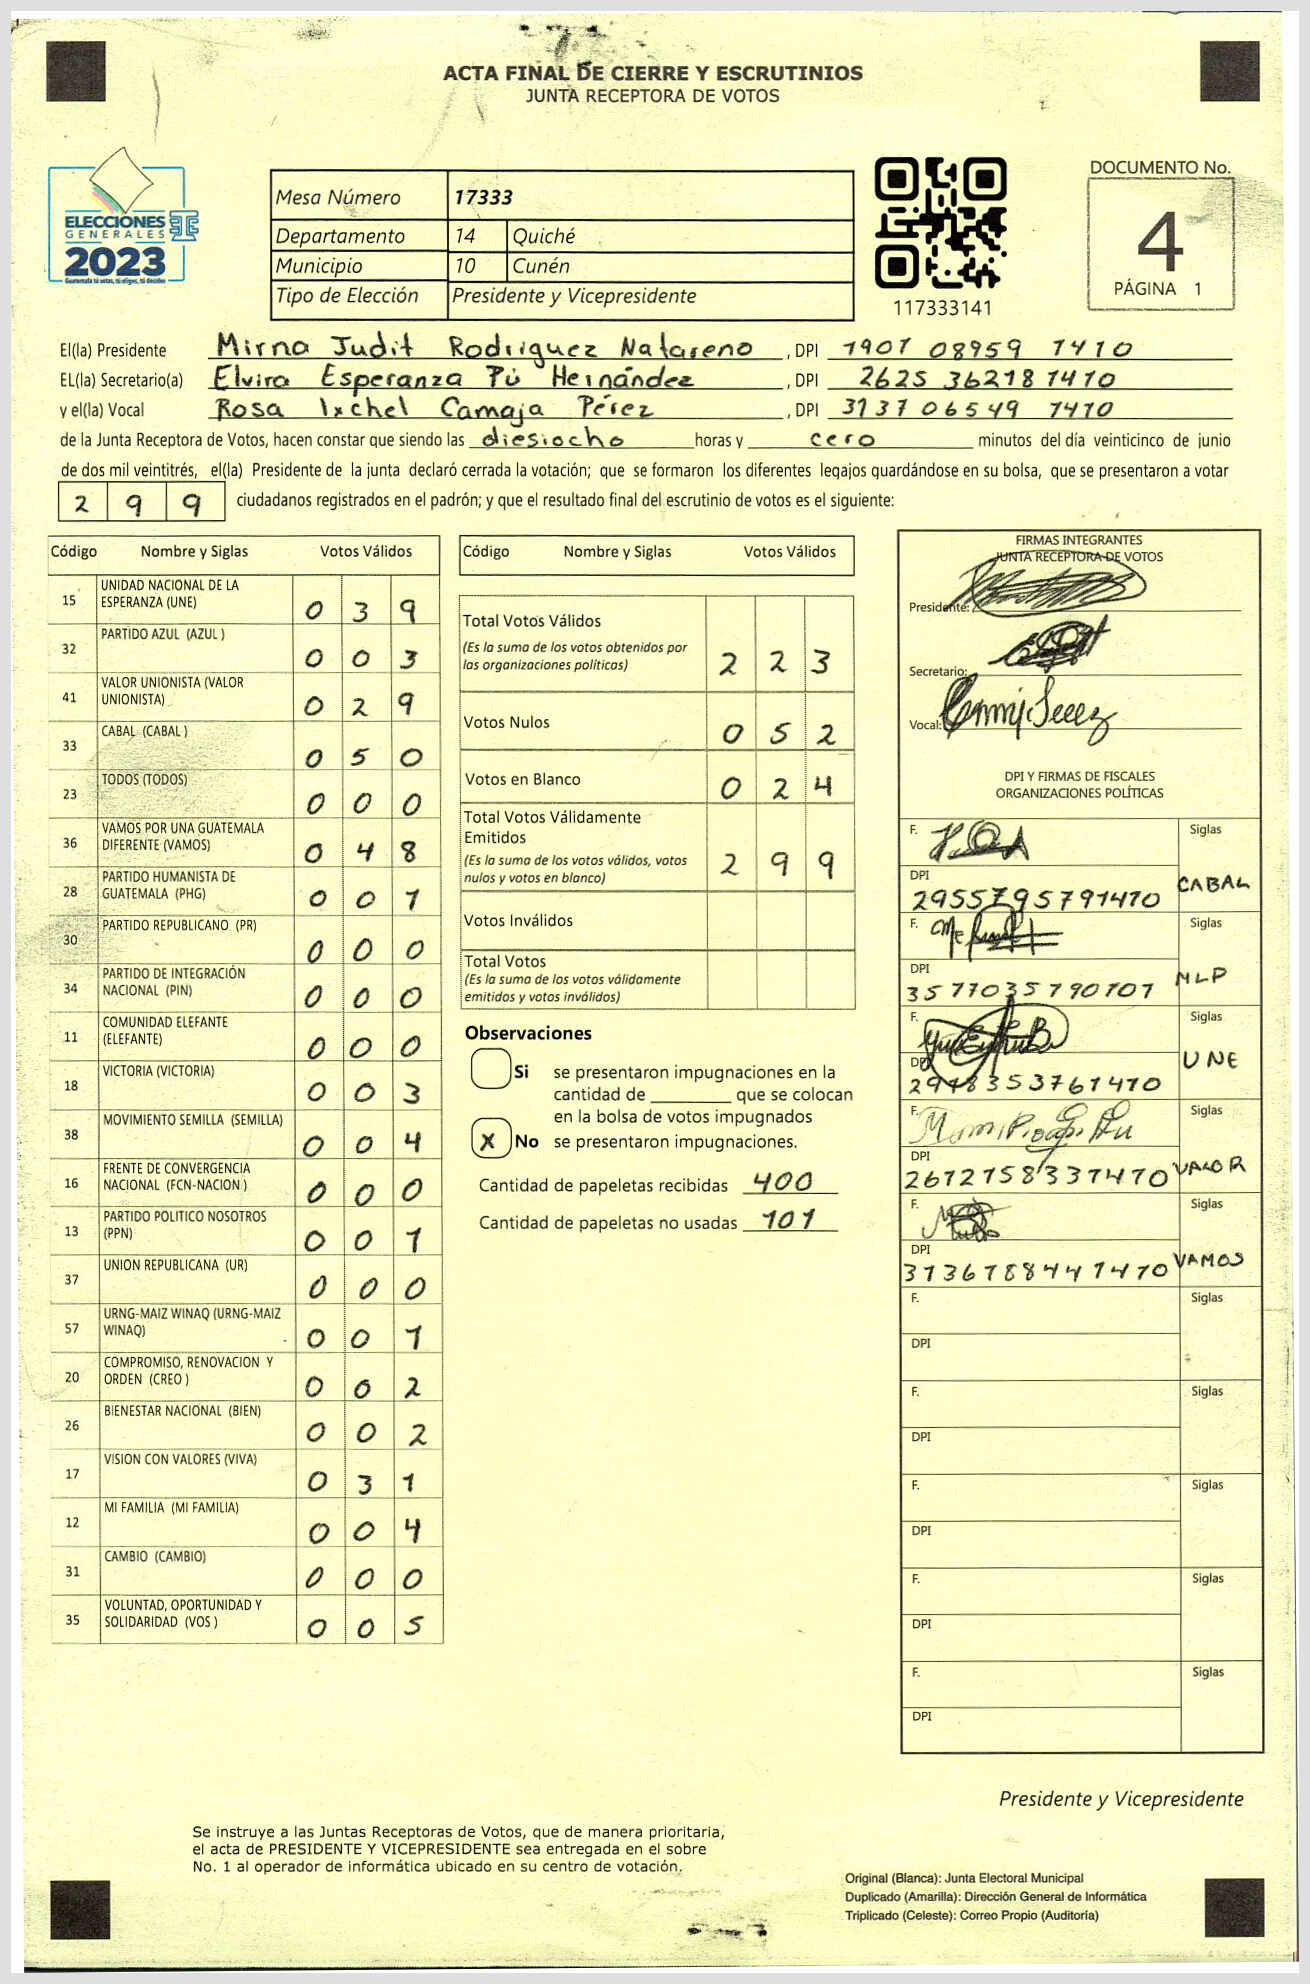 ACTA FINAL DE CIERRE Y ESCRUTINIOS
JUNTA RECEPTORA DE VOTOS
ELECCIONES
GENERALES
2023
Guatemala tú votas, tú eliges, tú decides
Mesa Número 17333
Departamento 14 Quiché
Municipio 10 Cunén
Tipo de Elección Presidente y Vicepresidente
117333141
DOCUMENTO No.
4
PÁGINA 1
El(la) Presidente Mirna Judit Rodriguez Natareno , DPI 1901 08959 1410
EL(la) Secretario(a) Elvira Esperanza Pú Hernández , DPI 2625 36218 1410
y el(la) Vocal Rosa Ixchel Camaja Pérez , DPI 3137 06549 1410
de la Junta Receptora de Votos, hacen constar que siendo las diesiocho horas y cero minutos del día veinticinco de junio
de dos mil veintitrés, el(la) Presidente de la junta declaró cerrada la votación; que se formaron los diferentes legajos guardándose en su bolsa, que se presentaron a votar
2 9 9 ciudadanos registrados en el padrón; y que el resultado final del escrutinio de votos es el siguiente:
Código Nombre y Siglas Votos Válidos
15 UNIDAD NACIONAL DE LA ESPERANZA (UNE) 0 3 9
32 PARTIDO AZUL (AZUL ) 0 0 3
41 VALOR UNIONISTA (VALOR UNIONISTA) 0 2 9
33 CABAL (CABAL ) 0 5 0
23 TODOS (TODOS) 0 0 0
36 VAMOS POR UNA GUATEMALA DIFERENTE (VAMOS) 0 4 8
28 PARTIDO HUMANISTA DE GUATEMALA (PHG) 0 0 1
30 PARTIDO REPUBLICANO (PR) 0 0 0
34 PARTIDO DE INTEGRACIÓN NACIONAL (PIN) 0 0 0
11 COMUNIDAD ELEFANTE (ELEFANTE) 0 0 0
18 VICTORIA (VICTORIA) 0 0 3
38 MOVIMIENTO SEMILLA (SEMILLA) 0 0 4
16 FRENTE DE CONVERGENCIA NACIONAL (FCN-NACION ) 0 0 0
13 PARTIDO POLITICO NOSOTROS (PPN) 0 0 1
37 UNION REPUBLICANA (UR) 0 0 0
57 URNG-MAIZ WINAQ (URNG-MAIZ WINAQ) 0 0 1
20 COMPROMISO, RENOVACION Y ORDEN (CREO ) 0 0 2
26 BIENESTAR NACIONAL (BIEN) 0 0 2
17 VISION CON VALORES (VIVA) 0 3 1
12 MI FAMILIA (MI FAMILIA) 0 0 4
31 CAMBIO (CAMBIO) 0 0 0
35 VOLUNTAD, OPORTUNIDAD Y SOLIDARIDAD (VOS ) 0 0 5
Código Nombre y Siglas Votos Válidos
Total Votos Válidos
(Es la suma de los votos obtenidos por
las organizaciones políticas) 2 2 3
Votos Nulos 0 5 2
Votos en Blanco 0 2 4
Total Votos Válidamente
Emitidos
(Es la suma de los votos válidos, votos
nulos y votos en blanco) 2 9 9
Votos Inválidos
Total Votos
(Es la suma de los votos válidamente
emitidos y votos inválidos)
Observaciones
Si se presentaron impugnaciones en la
cantidad de ________ que se colocan
en la bolsa de votos impugnados
X No se presentaron impugnaciones.
Cantidad de papeletas recibidas 400
Cantidad de papeletas no usadas 101
FIRMAS INTEGRANTES
JUNTA RECEPTORA DE VOTOS
Presidente:
Secretario:
Vocal:
DPI Y FIRMAS DE FISCALES
ORGANIZACIONES POLÍTICAS
F. Siglas
DPI CABAL
2955795791410
F. Siglas
DPI MLP
3577035790101
F. Siglas
DPI UNE
2948353761410
F. Siglas
DPI VALOR
2672758337410
F. Siglas
DPI VAMOS
3136788441410
F. Siglas
DPI
F. Siglas
DPI
F. Siglas
DPI
F. Siglas
DPI
F. Siglas
DPI
Presidente y Vicepresidente
Se instruye a las Juntas Receptoras de Votos, que de manera prioritaria,
el acta de PRESIDENTE Y VICEPRESIDENTE sea entregada en el sobre
No. 1 al operador de informática ubicado en su centro de votación.
Original (Blanca): Junta Electoral Municipal
Duplicado (Amarilla): Dirección General de Informática
Triplicado (Celeste): Correo Propio (Auditoría)